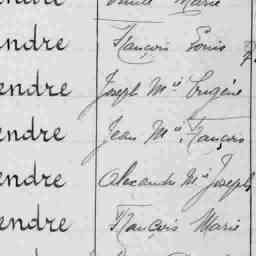 Marie
endre François Louis
endre Joseph M ie Eugène
endre Jean M ie François
endre Alexandre M ie Joseph
endre François Marie